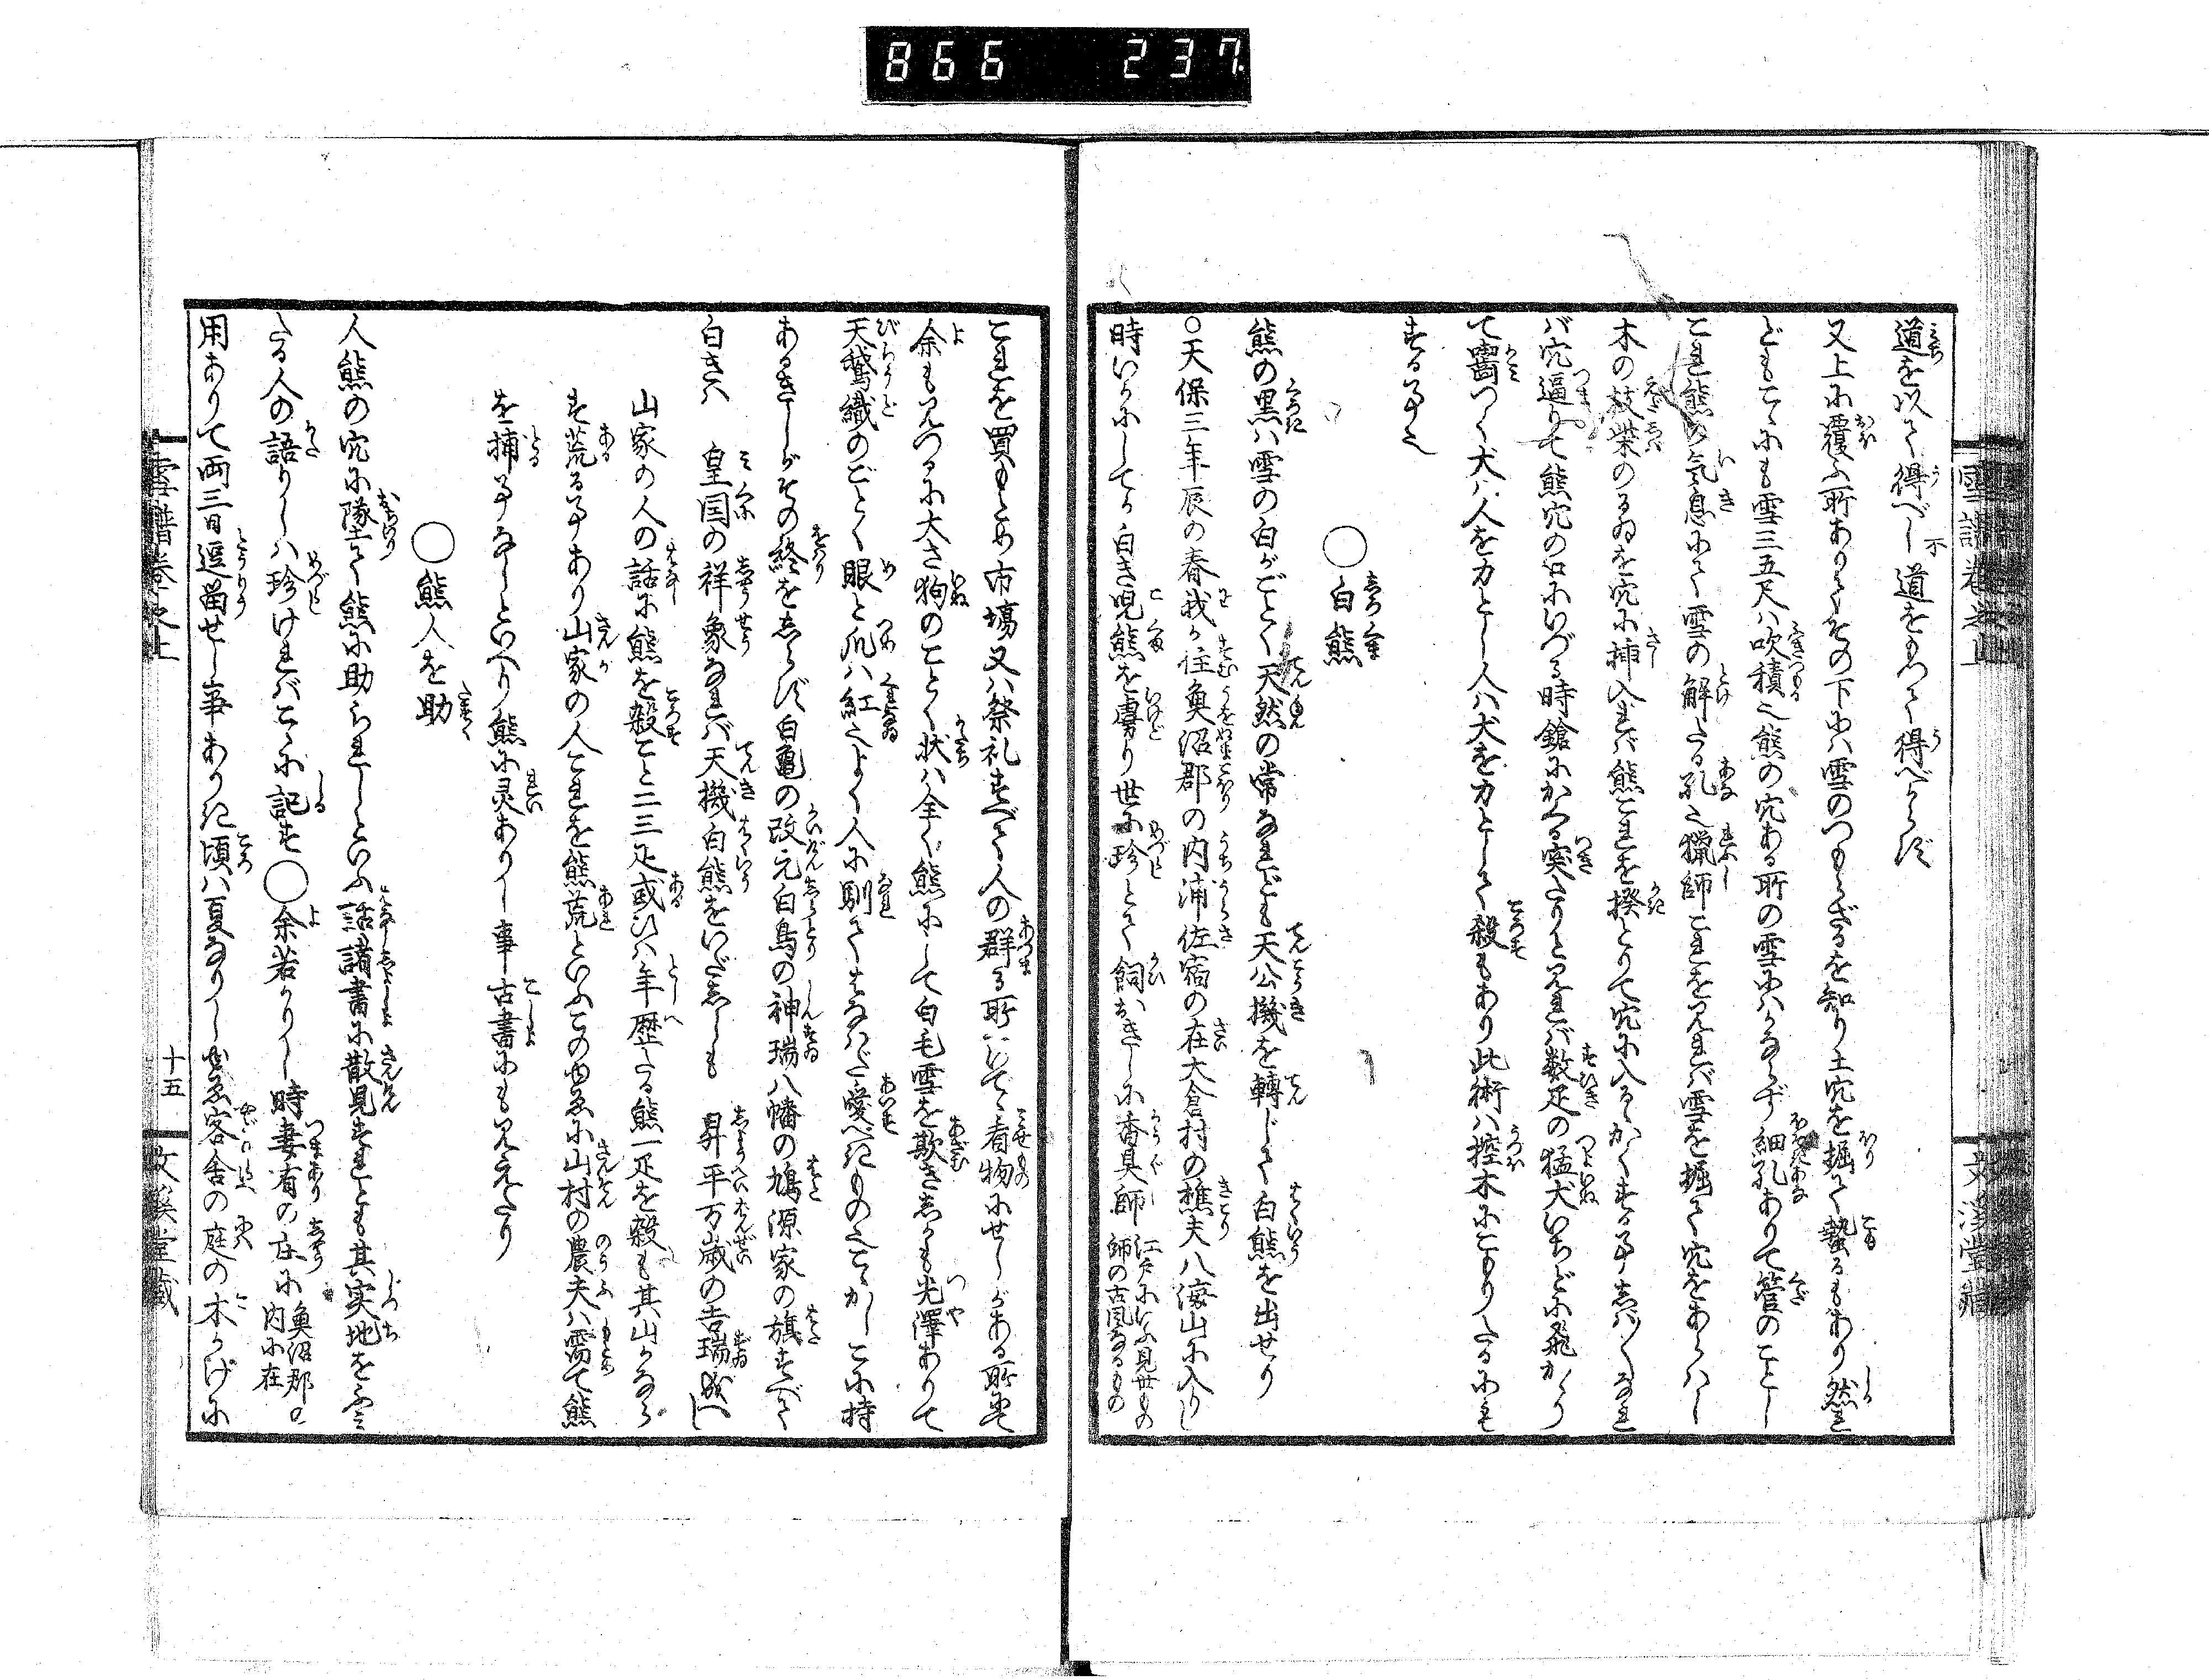 866 237
道を以て得べし不道をもつて得べからず
又上に覆ふ所ありてその下には雪のつもらざるを知り土穴を掘て蟄るもあり然れ
どもこゝにも雪三五尺ハ吹積也熊の穴ある所の雪にハかならず細孔ありて管のごとし
これ熊の気息にて雪の解たる孔也猟師これを見れバ雪を掘て穴をあらハし
木の枝柴のるゐを穴に挿入れバ熊これを掻とりて穴に入るゝかくする事しバ／＼なれ
バ穴逼りて熊穴の口にいづる時鎗にかくる突たりと見れバ数疋の猛犬いちどに飛かゝり
て囓つく犬ハ人を力とし人ハ犬を力として殺もあり此術ハ控木にこもりたるにも
する事也
○白熊
熊の黒ハ雪の白がごとく天然の常なれども天公機を轉じて白熊を出せり
○天保三年辰の春我が住魚沼郡の内浦佐宿の在大倉村の樵夫八海山に入りし
時いかにしてか白き児熊を虜り世に珍とて飼おきしに香具師 江戸にいふ見世もの師の古風なるもの
これを買もとめ市場又ハ祭礼すべて人の群る所へいでゝ看物にせしがある所にて
余も見つるに大さ狗のごとく状ハ全く熊にして白毛雪を欺きしかも光澤ありて
天鵞織のごとく眼と爪ハ紅也よく人に馴てはなはだ愛べきもの也こゝかしこに持
あるきしがその終をしらず白亀の改元白鳥の神瑞八幡の鳩源家の旗すべて
白きハ　皇国の祥象なれバ天機白熊をいだしゝも　昇平万歳の吉瑞成べし
山家の人の話に熊を殺こと二三疋或ひハ年歴たる熊一疋を殺も其山かならず
荒る事あり山家の人これを熊荒といふこのゆゑに山村の農夫ハ需て熊
を捕事なしといへり熊に灵ありし事古書にも見えたり
○熊人を助
人熊の穴に墜て熊に助られしといふ話諸書に散見すれども其実地をふみ
たる人の語りしハ珍けれバこゝに記す○余若かりし時妻有の庄に 魚沼郡の内に在
用ありて両三日逗畄せし事ありき頃ハ夏なりしゆゑ客舎の庭の木かげに
雪譜巻之上
十五
文溪堂藏